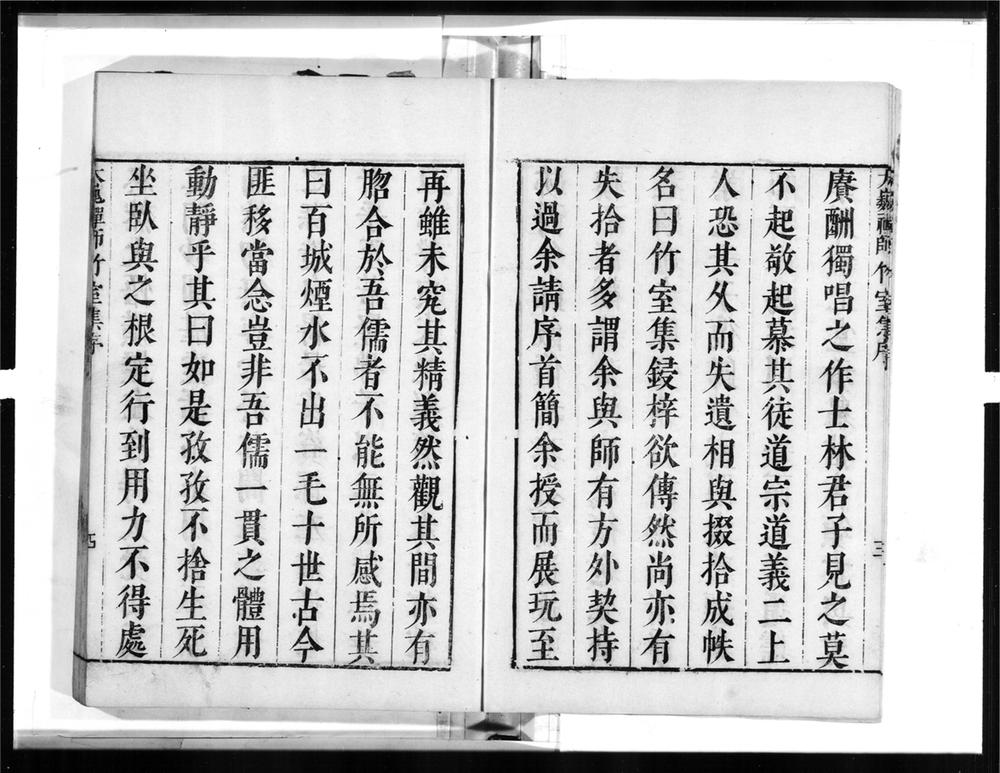 賡酬獨唱之作士林君子見之莫
不起敬起慕其徒道宗道義二上
人恐其久而失遺相與掇拾成帙
名曰竹室集鋟梓欲傳然尚亦有
失拾者多謂余與師有方外契持
以過余請序首簡余授而展玩至
再雖未究其精義然觀其間亦有
脗合於吾儒者不能無所感焉其
曰百城煙水不出一毛十世古今
匪移當念豈非吾儒一貫之體用
動靜乎其曰如是孜孜不捨生死
坐臥與之根定行到用力不得處
禪師竹室集序